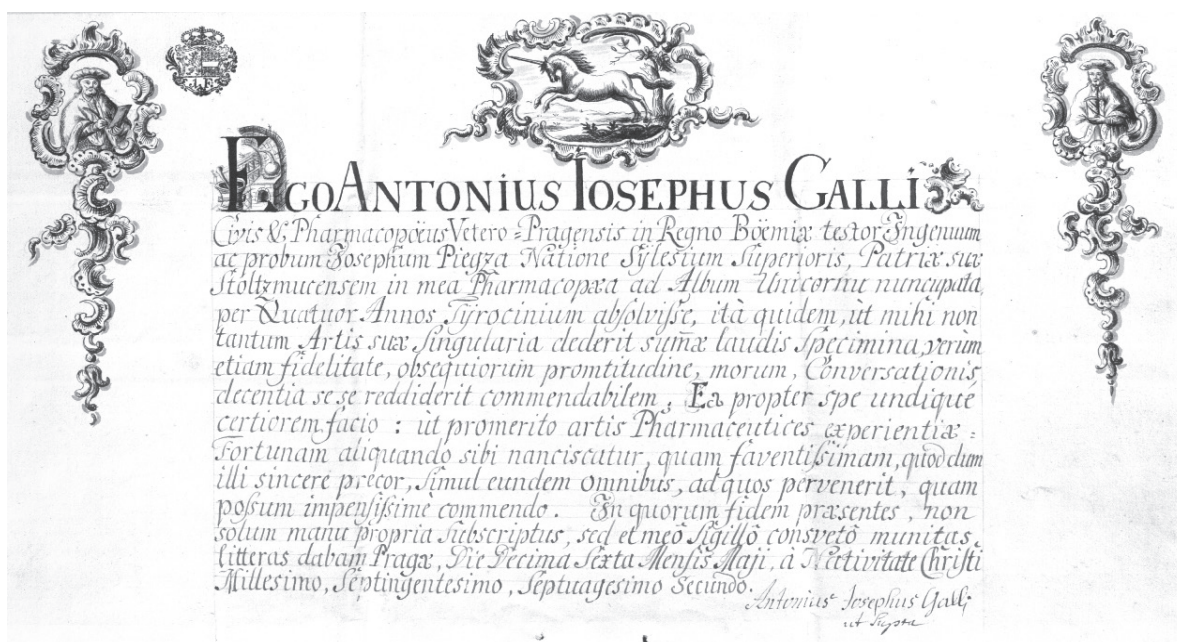 EGO ANTONIUS IOSEPHUS GALLI
Civis & Pharmacopœus Vetero=Pragensis in Regno Böemiæ testor Ingenuum
ac probum Josephum Piegza Natione Sylesium Superioris, Patriæ suæ
Stoltzmucensem in mea Pharmacopæa ad Album Unicornu nuncupata
per Quatuor Annos Tyrocinium absolvisse, ità quidem, ùt mihi non
tantum Artis suæ Singularia dederit sum̄æ laudis Specimina, verùm
etiam fidelitate, obsequiorum promtitudine, morum, Conversationis
decentia se se reddiderit commendabilem, Ea propter spe undiquè
certiorem facio : ùt promerito artis Pharmaceutices experientiæ =
Fortunam aliquando sibi nanciscatur, quam faventissimam, quod dum
illi sincerè precor, Simul eundem omnibus, ad quos pervenerit, quam
possum impensissimè commendo. In quorum fidem præsentes, non
solùm manu propria subscriptus, sed et meô Sigillô consvetô munitas
litteras dabam Pragæ, Die Decima Sexta Mensis Maji, à Nativitate Christi
Millesimo, Septingentesimo, Septuagesimo Secundo.
Antonius Josephus Galli
ut Supra